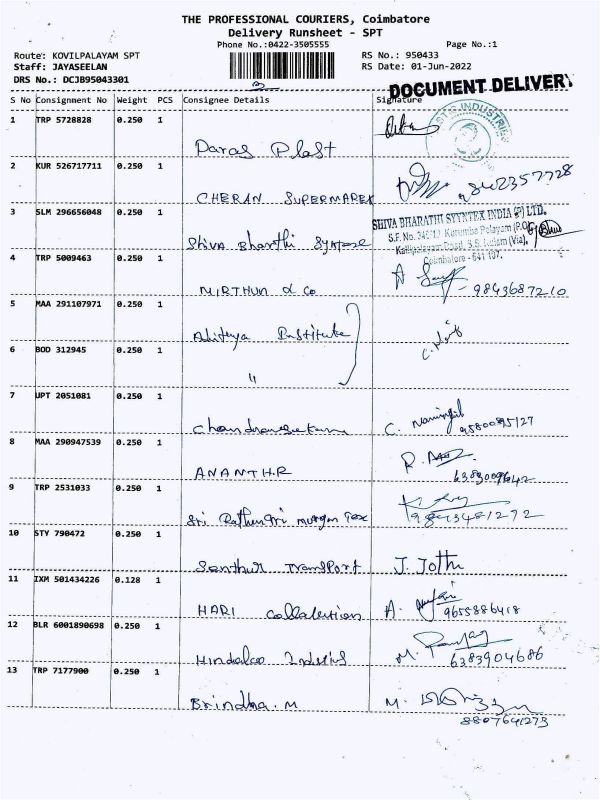 THE PROFESSIONAL COURIERS, Coimbatore
Delivery Runsheet - SPT
Phone No.:0422-3505555
Page No.:1
Route: KOVILPALAYAM SPT
RS No.: 950433
Staff: JAYASEELAN
RS Date: 01-Jun-2022
DRS No.: DCJB95043301
DOCUMENT DELIVERY
S No Consignment No Weight PCS Consignee Details Signature
1 TRP 5728828 0.250 1
Paras Plast
2 KUR 526717711 0.250 1
CHERAN SUPERMAREK 9842357728
3 SLM 296656048 0.250 1
SHIVA BHARATHI SYYNTEX INDIA (P) LTD.
Shiva Bharthi
4 TRP 5009463 0.250 1
Coimbatore - 641 107.
MIRTHUN & Co 9843687210
5 MAA 291107971 0.250 1
Adithya Institute
6 BOD 312945 0.250 1
"
7 UPT 2051081 0.250 1
C.
8 MAA 290947539 0.250 1
ANANTH.R R.
9 TRP 2531033 0.250 1
Sri murgan Tex
10 STY 790472 0.250 1
Santhur Transport J. Jothi
11 IXM 501434226 0.128 1
HARI A. 9655886418
12 BLR 6001890698 0.250 1
Hindalco M. 6383904686
13 TRP 7177900 0.250 1
Brindha. M M.
8807641273